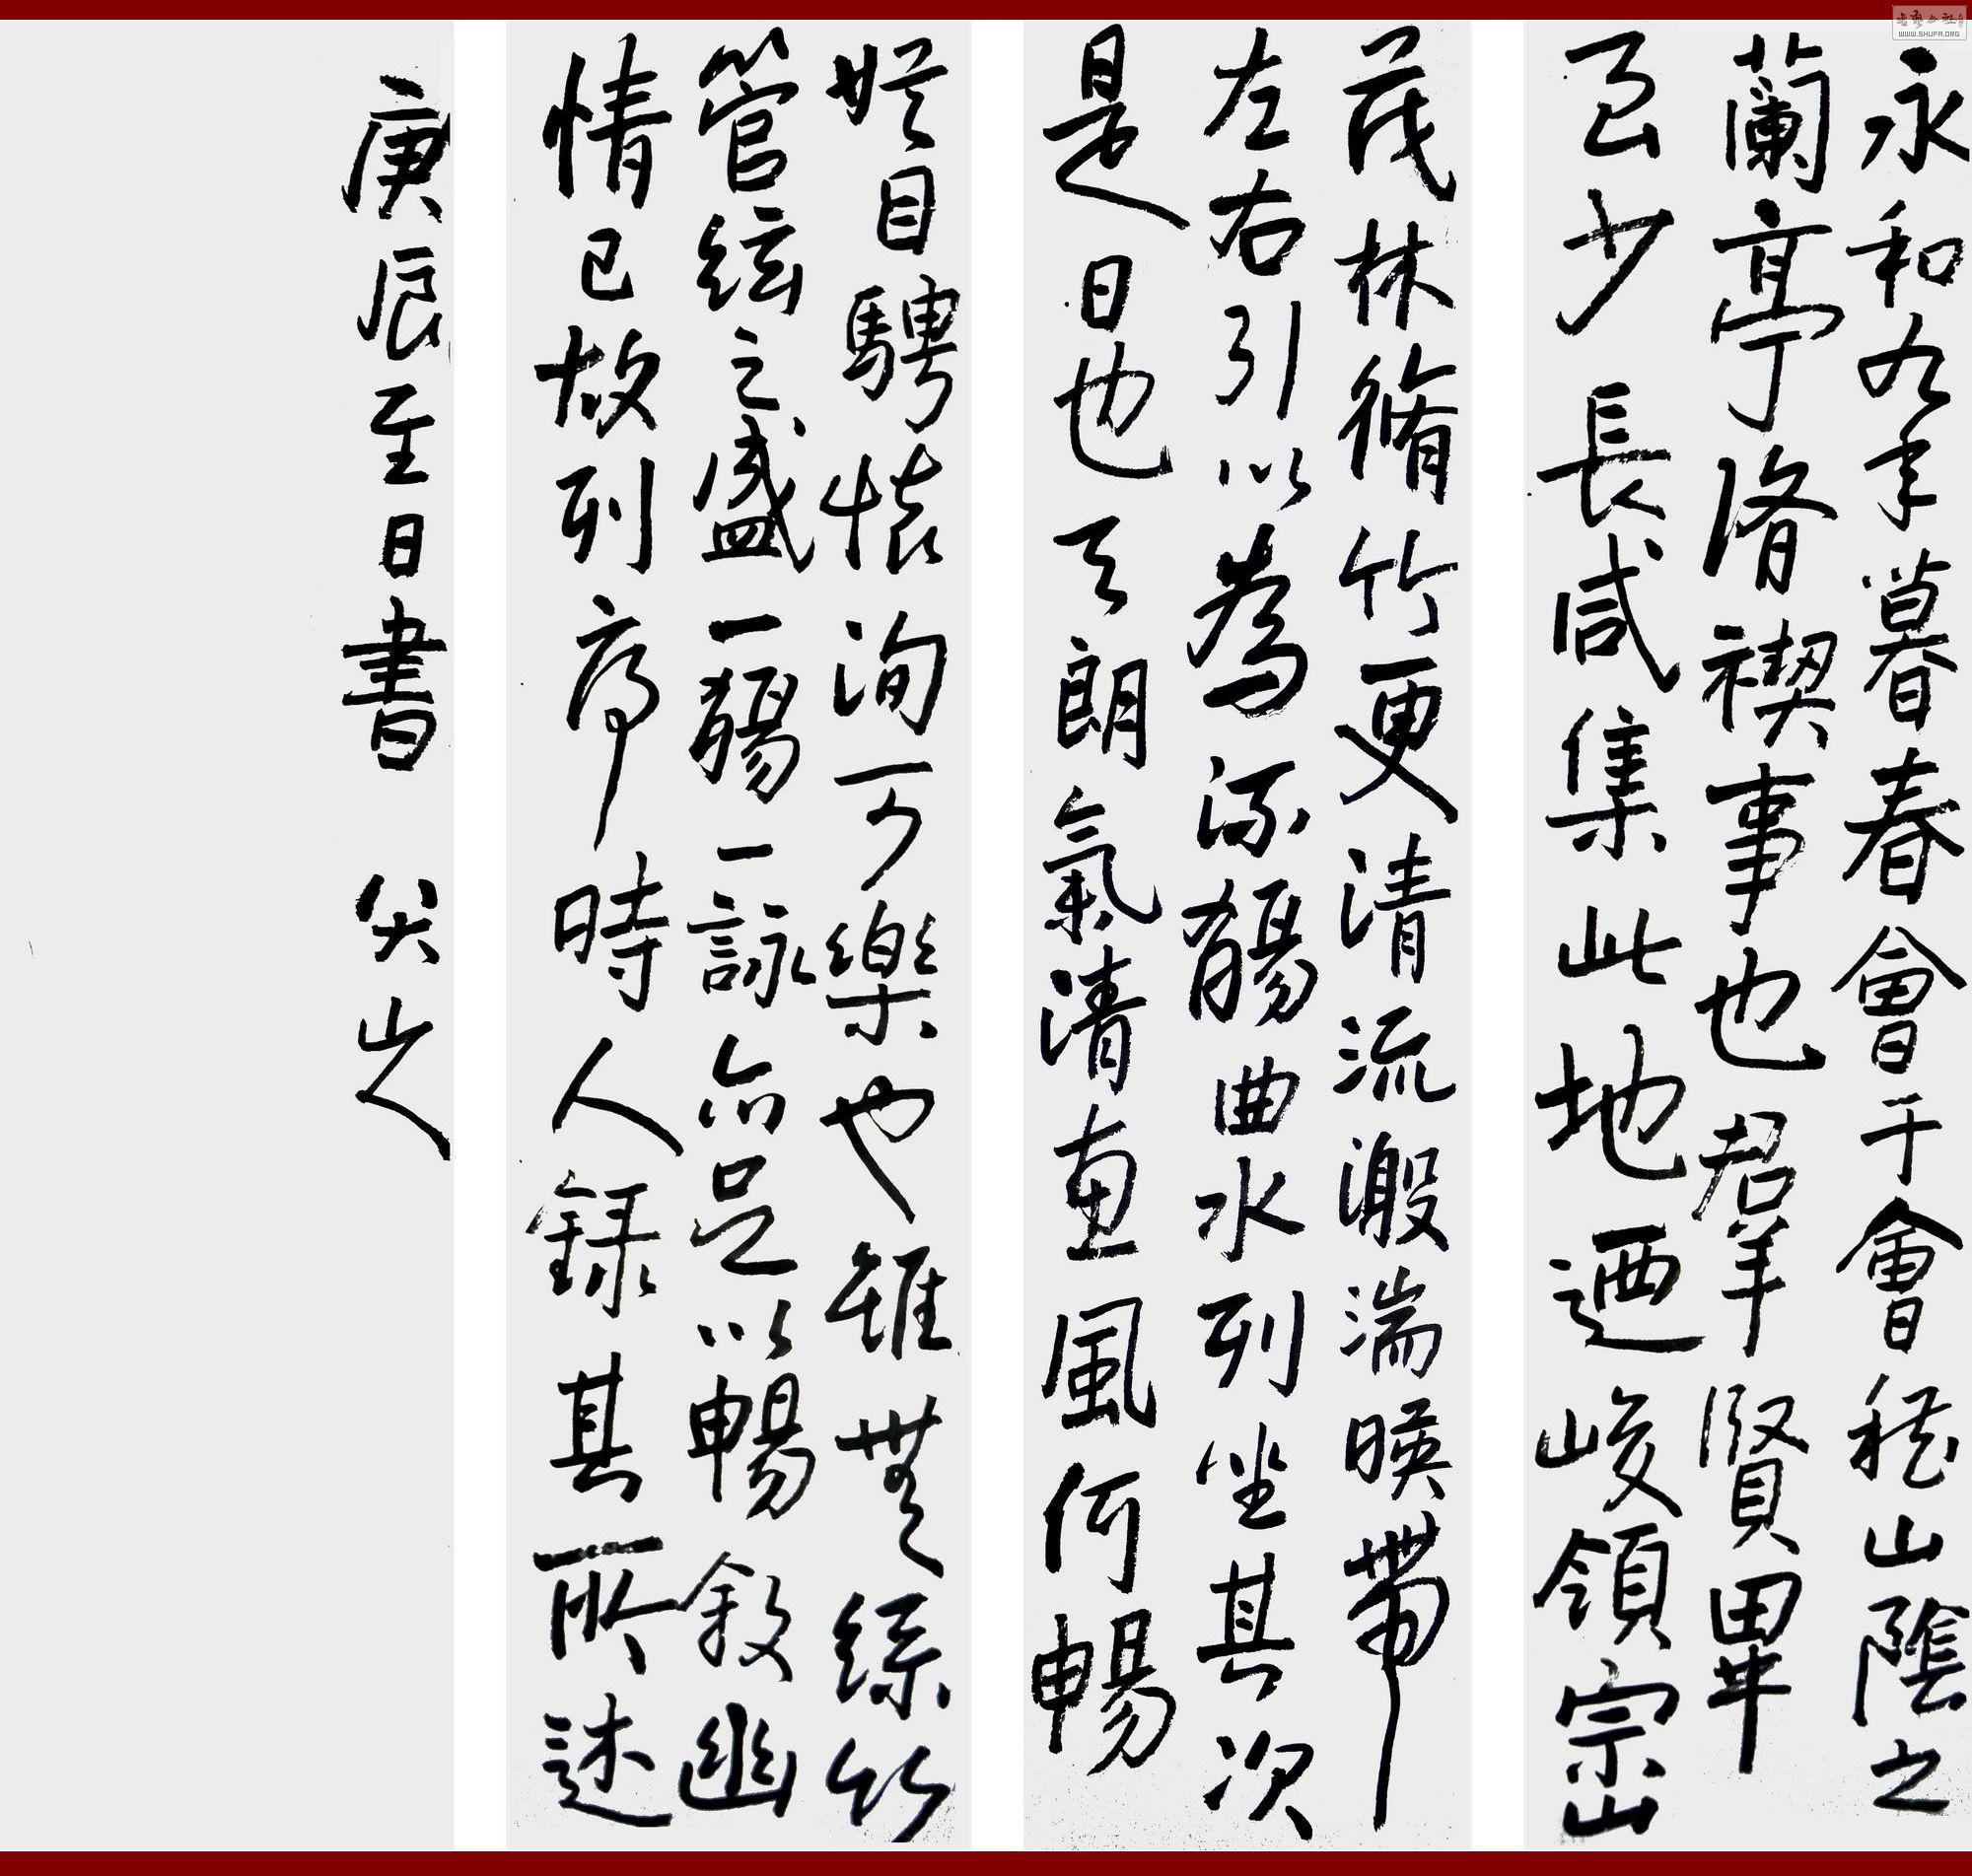 永和九年暮春會于會稽山陰之
蘭亭脩禊事也羣賢畢
至少長咸集此地迺峻領宗山
茂林脩竹更清流激湍暎帶
左右引以為流觴曲水列坐其次
是日也天朗氣清惠風何暢
娛目騁懷洵可樂也雖無絲竹
管絃之盛一觴一詠亦足以暢敘幽
情已故列序時人録其所述
庚辰至日書 八大山人
WWW.SHUFA.ORG